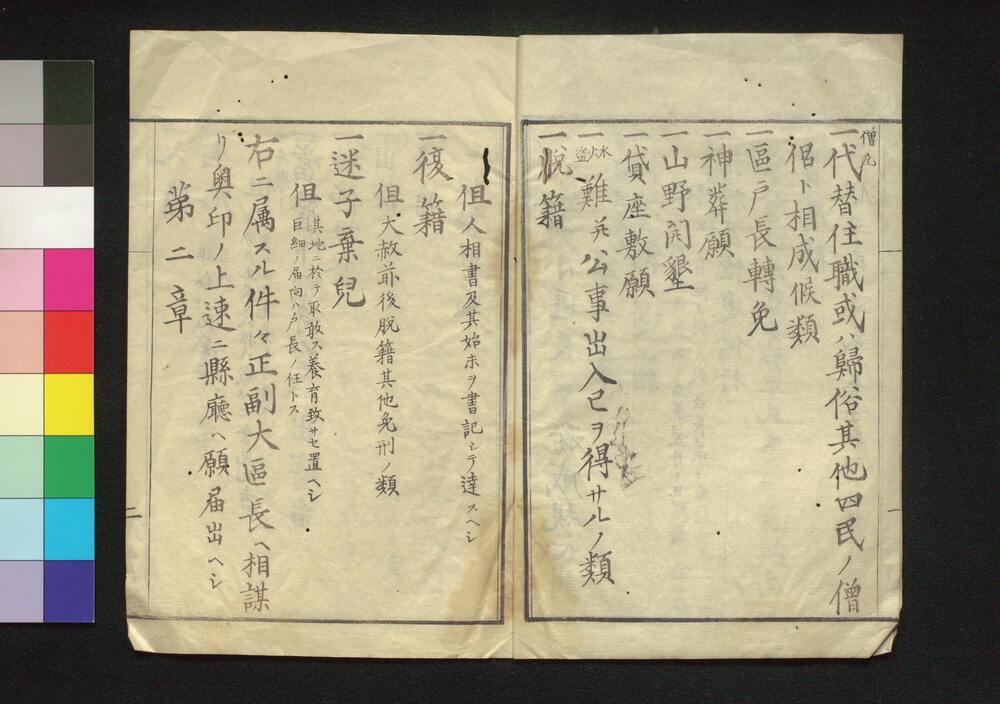 僧尼
一代替住職或ハ歸俗其他四民ノ僧
侶ト相成候類
一區戸長轉免
一神葬願
一山野開墾
一貸座敷願
一水火盗難并公事出入已ヲ得サルノ類
一脱籍
但人相書及其始末ヲ書記シテ達スヘシ
一復籍
但大赦前後脱籍其他免刑ノ類
一迷子棄兒
但其地ニ於テ取敢ス養育致サセ置ヘシ
巨細ノ届向ハ戸長ノ任トス
右ニ属スル件々正副大區長ヘ相謀
リ奥印ノ上速ニ縣廳ヘ願届出ヘシ
第二章
二